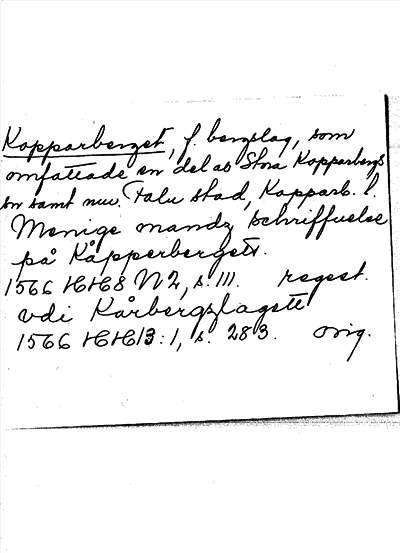 Kopparberget, f. bergslag, som
omfattade en del av Stora Kopparbergs
sn samt nuv. Falu stad, Kopparb. l.
Menige mandz schriffuelse
på Kåpperbergett.
1566 HH8 N2, s. 111. regest.
vdi Kårbergzlagett
1566 HH13:1, s. 283. orig.